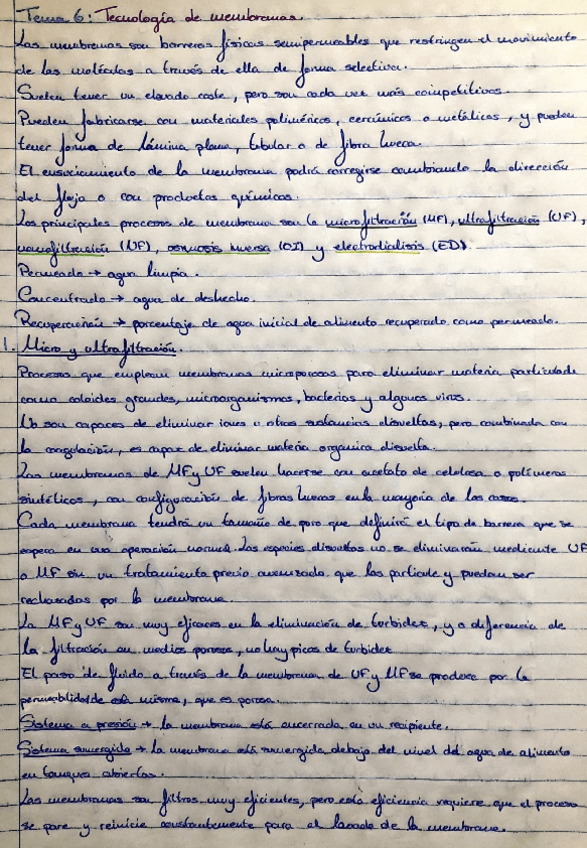 Tema 6: Tecnología de membranas.
Las membranas son barreras físicas semipermeables que restringen el movimiento
de las moléculas a través de ella de forma selectiva.
Suelen tener un elevado coste, pero son cada vez más competitivas.
Pueden fabricarse con materiales poliméricos, cerámicos o metálicos, y pueden
tener forma de lámina plana, tubular o de fibra hueca.
El ensuciamiento de la membrana podrá corregirse cambiando la dirección
del flujo o con productos químicos.
Los principales procesos de membrana son la microfiltración (MF), ultrafiltración (UF),
nanofiltración (NF), osmosis inversa (OI) y electrodialisis (ED).
Permeado → agua limpia.
Concentrado → agua de deshecho.
Recuperación → porcentaje de agua inicial de alimento recuperado como permeado.
1. Micro y ultrafiltración.
Procesos que emplean membranas microporosas para eliminar materia particulada
como coloides grandes, microorganismos, bacterias y algunos virus.
No son capaces de eliminar iones u otras sustancias disueltas, pero combinada con
la coagulación, es capaz de eliminar materia orgánica disuelta.
Las membranas de MF y UF suelen hacerse con acetato de celulosa o polímeros
sintéticos, con configuración de fibras huecas en la mayoría de los casos.
Cada membrana tendrá un tamaño de poro que definirá el tipo de barrera que se
espera en una operación normal. Las especies disueltas no se eliminarán mediante UF
o MF sin un tratamiento previo avanzado que las particule y puedan ser
rechazadas por la membrana.
La MF y UF son muy eficaces en la eliminación de turbidez, y a diferencia de
la filtración en medios porosos, no hay picos de turbidez
El paso de fluido a través de la membrana de UF y MF se produce por la
permeabilidad de esta misma, que es porosa.
Sistema a presión → la membrana está encerrada en un recipiente.
Sistema sumergido → la membrana está sumergida debajo del nivel del agua de alimento
en tanques abiertos.
Las membranas son filtros muy eficientes, pero esta eficiencia requiere que el proceso
se pare y reinicie constantemente para el lavado de la membrana.